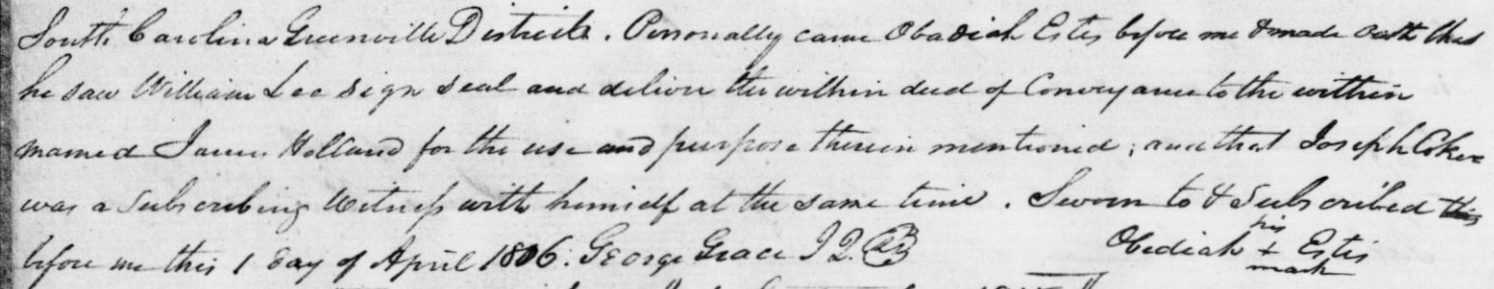 South Carolina Greenville District. Personally came Obadiah Estis before me & made oath that
he saw William Lee sign seal and deliver the within deed of Conveyance to the within
named James Holland for the use and purpose therein mentioned; and that Joseph Coker
was a Subscribing Witness with himself at the same time. Sworn to & Subscribed
before me this 1 day of April 1806. George Grace J Q.
his
Obediah + Estis
mark